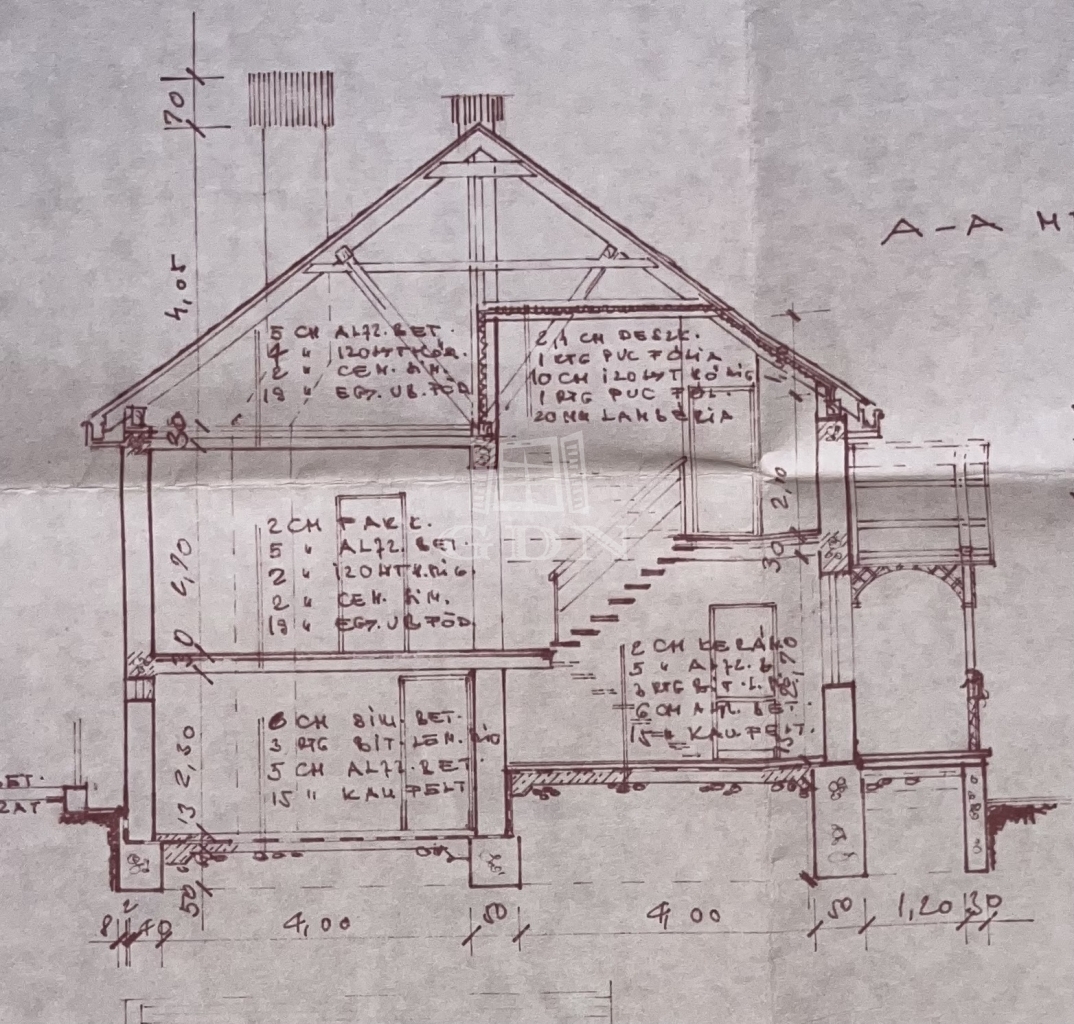 70
4,05
A-A
5 CM ALJZ. BET.
4 "
2 " CEM. SIM.
19 " EGY. UB. FÖD
2,4 CM DESZK.
1 RTG PVC FÓLIA
10 CM
1 RTG PVC FÓL.
20 MM LAMBÉRIA
30
2,10
GDN
30
2 CM PARK.
5 " ALJZ. BET.
2 "
2 " CEM. SIM.
19 " EGY. UB FÖD.
30
2 CM KERÁMO
5 " ALJZ. B
3 RTG BIT. L.
6 CM ALJZ. BET.
15 " KAV FELT.
6 CM SIM. BET.
3 RTG BIT. LEM.
5 CM ALJZ. BET.
15 " KAV FELT
2,30
13
BET.
ZAT
50
8
2
40
4,00
50
4,00
50
1,20
30